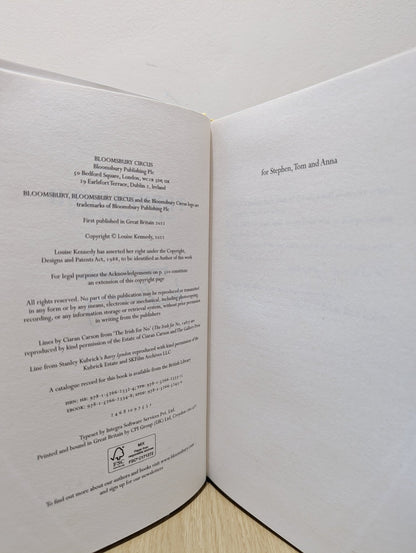 BLOOMSBURY CIRCUS
Bloomsbury Publishing Plc
50 Bedford Square, London, WC1B 3DP, UK
29 Earlsfort Terrace, Dublin 2, Ireland
BLOOMSBURY, BLOOMSBURY CIRCUS and the Bloomsbury Circus logo are
trademarks of Bloomsbury Publishing Plc
First published in Great Britain 2022
Copyright © Louise Kennedy, 2022
Louise Kennedy has asserted her right under the Copyright,
Designs and Patents Act, 1988, to be identified as Author of this work
For legal purposes the Acknowledgements on p. 310 constitute
an extension of this copyright page
All rights reserved. No part of this publication may be reproduced or transmitted
in any form or by any means, electronic or mechanical, including photocopying,
recording, or any information storage or retrieval system, without prior permission
in writing from the publishers
Lines by Ciaran Carson from 'The Irish for No' (The Irish for No, 1987) are
reproduced by kind permission of the Estate of Ciaran Carson and The Gallery Press
Line from Stanley Kubrick's Barry Lyndon reproduced with kind permission of the
Kubrick Estate and SKFilm Archives LLC
A catalogue record for this book is available from the British Library
ISBN: HB:
EBOOK:
2 4 6 8 10 9 7 5 3 1
Typeset by Integra Software Services Pvt. Ltd.
Printed and bound in Great Britain by CPI Group (UK) Ltd, Croydon
FSC
MIX
To find out more about our authors and books visit www.bloomsbury.com
and sign up for our newsletters
for Stephen, Tom and Anna